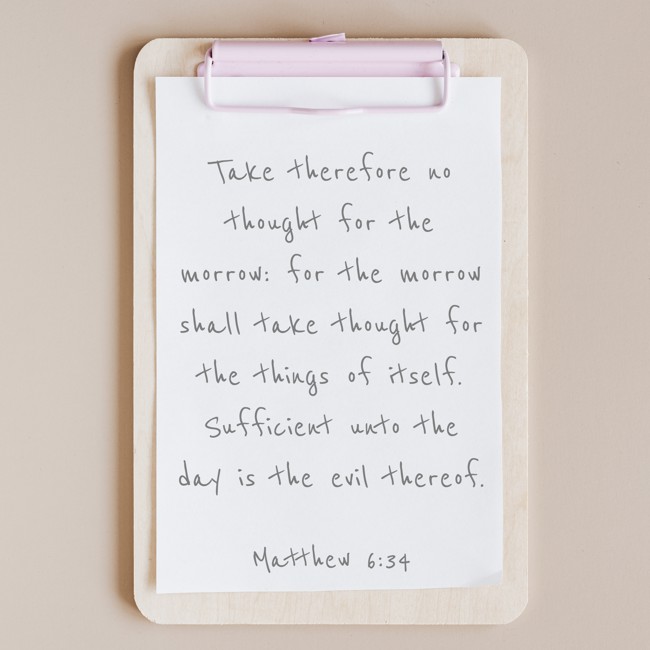 Take therefore no
thought for the
morrow: for the morrow
shall take thought for
the things of itself.
Sufficient unto the
day is the evil thereof.
Matthew 6:34